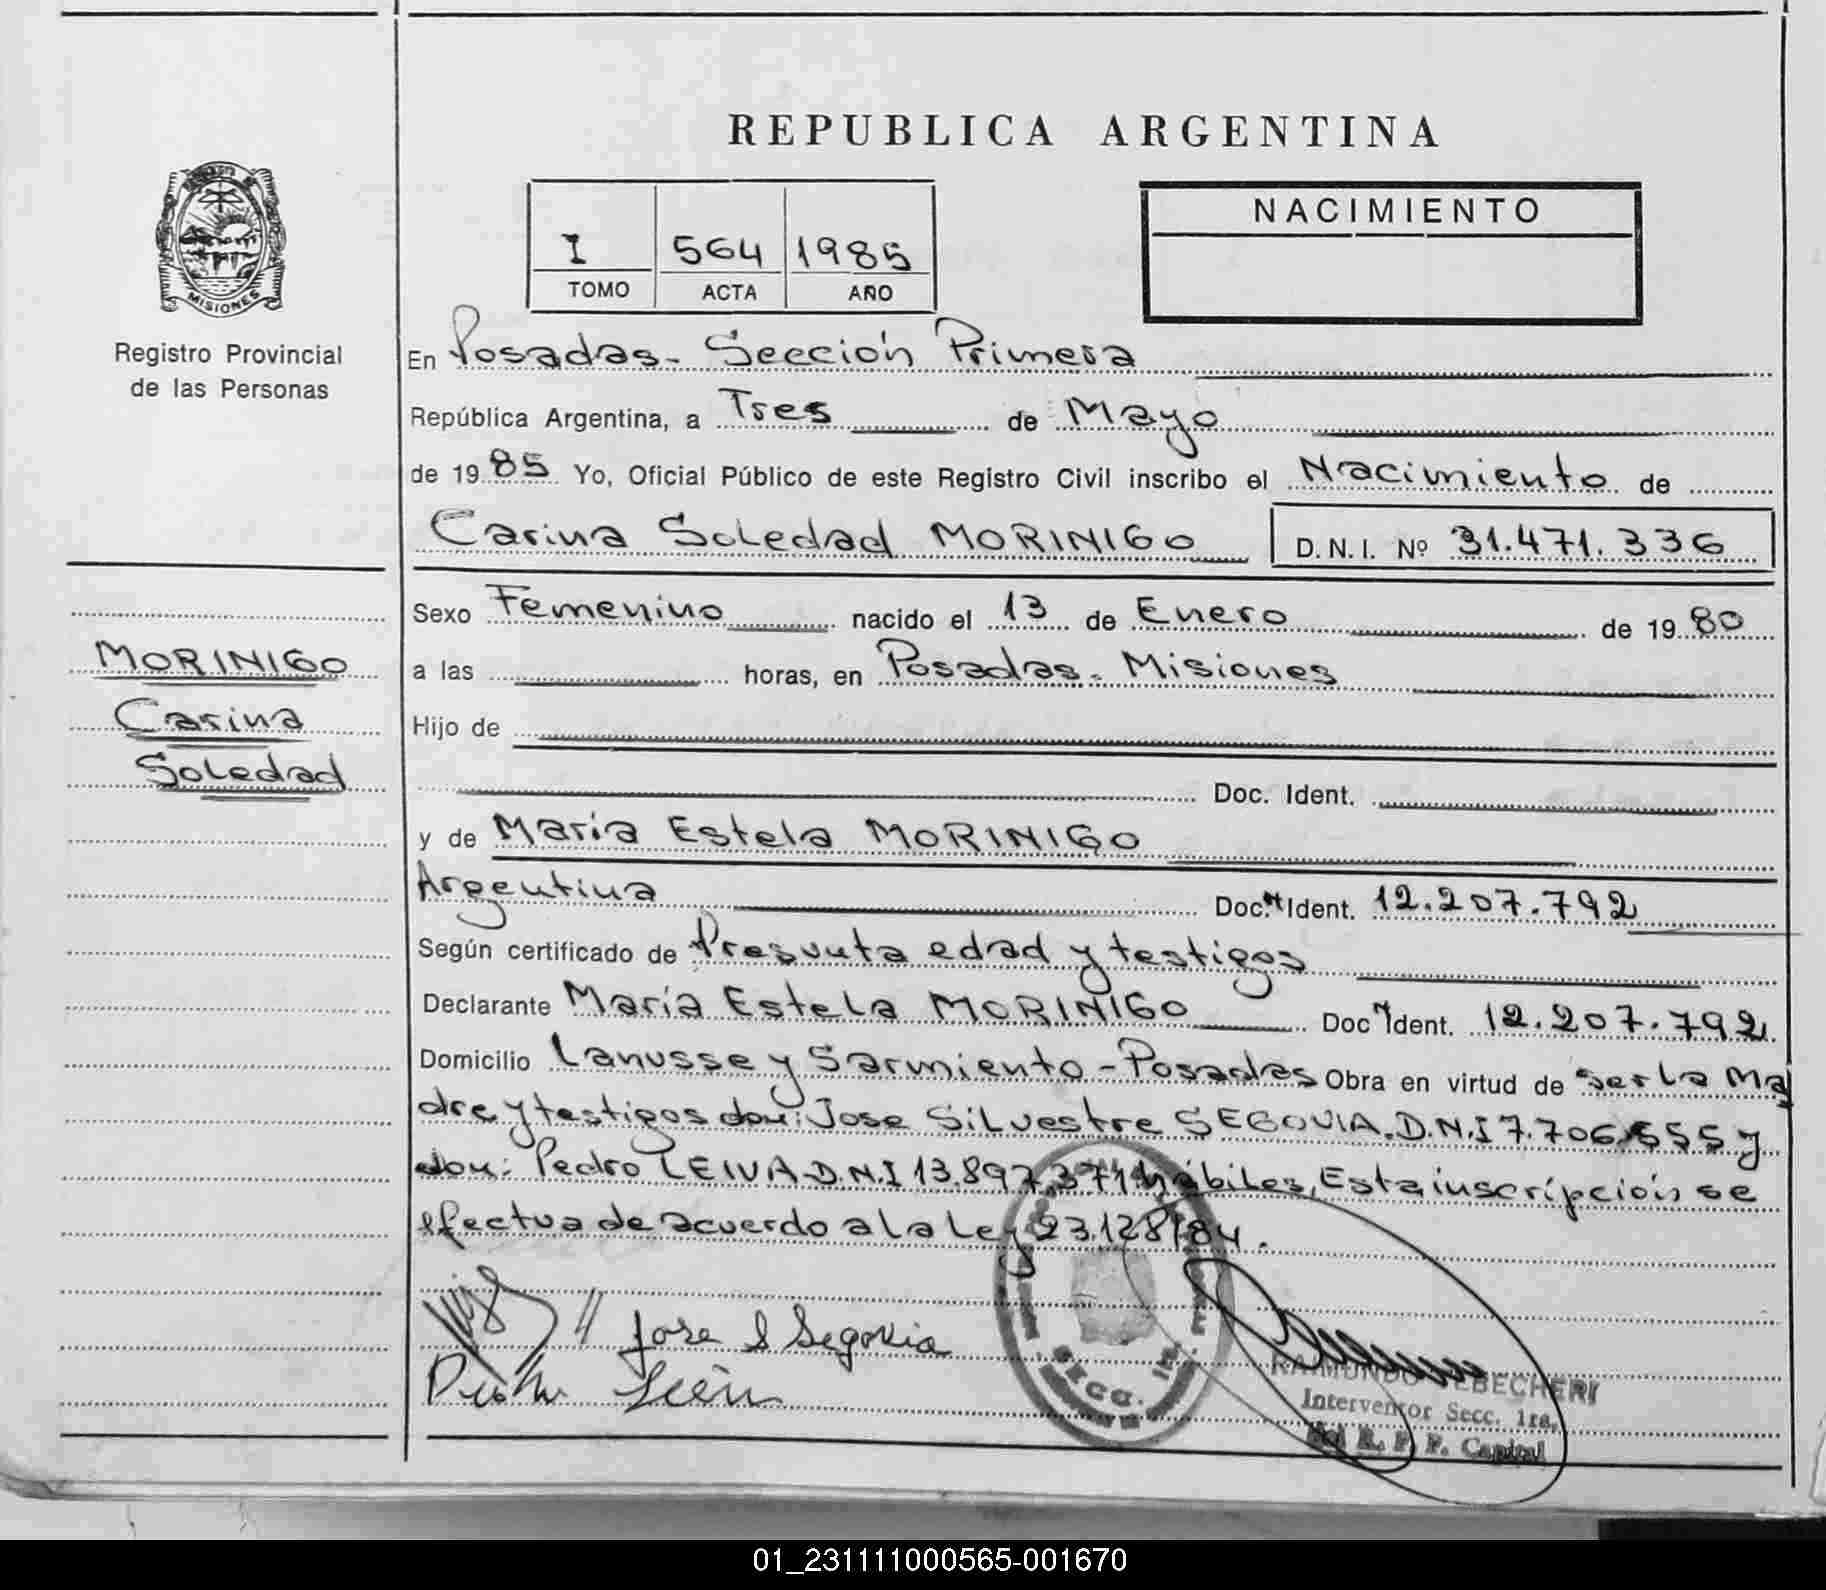 REPUBLICA ARGENTINA
NACIMIENTO
I 564 1985
TOMO ACTA AÑO
MISIONES
Registro Provincial
de las Personas
En Posadas- Sección Primera
República Argentina, a Tres de Mayo
de 1985 Yo, Oficial Público de este Registro Civil inscribo el Nacimiento de
Carina Soledad MORINIGO D.N.I. Nº 31.471.336
Sexo Femenino nacido el 13 de Enero de 1980
MORINIGO
Carina
Soledad
a las horas, en Posadas- Misiones
Hijo de
Doc. Ident.
y de María Estela MORINIGO
Argentina Doc. Ident. 12.207.792
Según certificado de Presunta edad y testigos
Declarante María Estela MORINIGO Doc Ident. 12.207.792
Domicilio Lanusse y Sarmiento-Posadas Obra en virtud de ser la Ma
dre y testigos don: Jose Silvestre SEGOVIA.D.N.I 7.706.555 y
don: Pedro LEIVA-D.N.I 13.897.371 hábiles, Esta inscripción se
efectua de acuerdo a la Ley 23.128/84.
Jose S Segovia
SECC. 1ra.
RAIMUNDO
Interventor Secc. 1ra.
del R. P. P. Capital
01_231111000565-001670